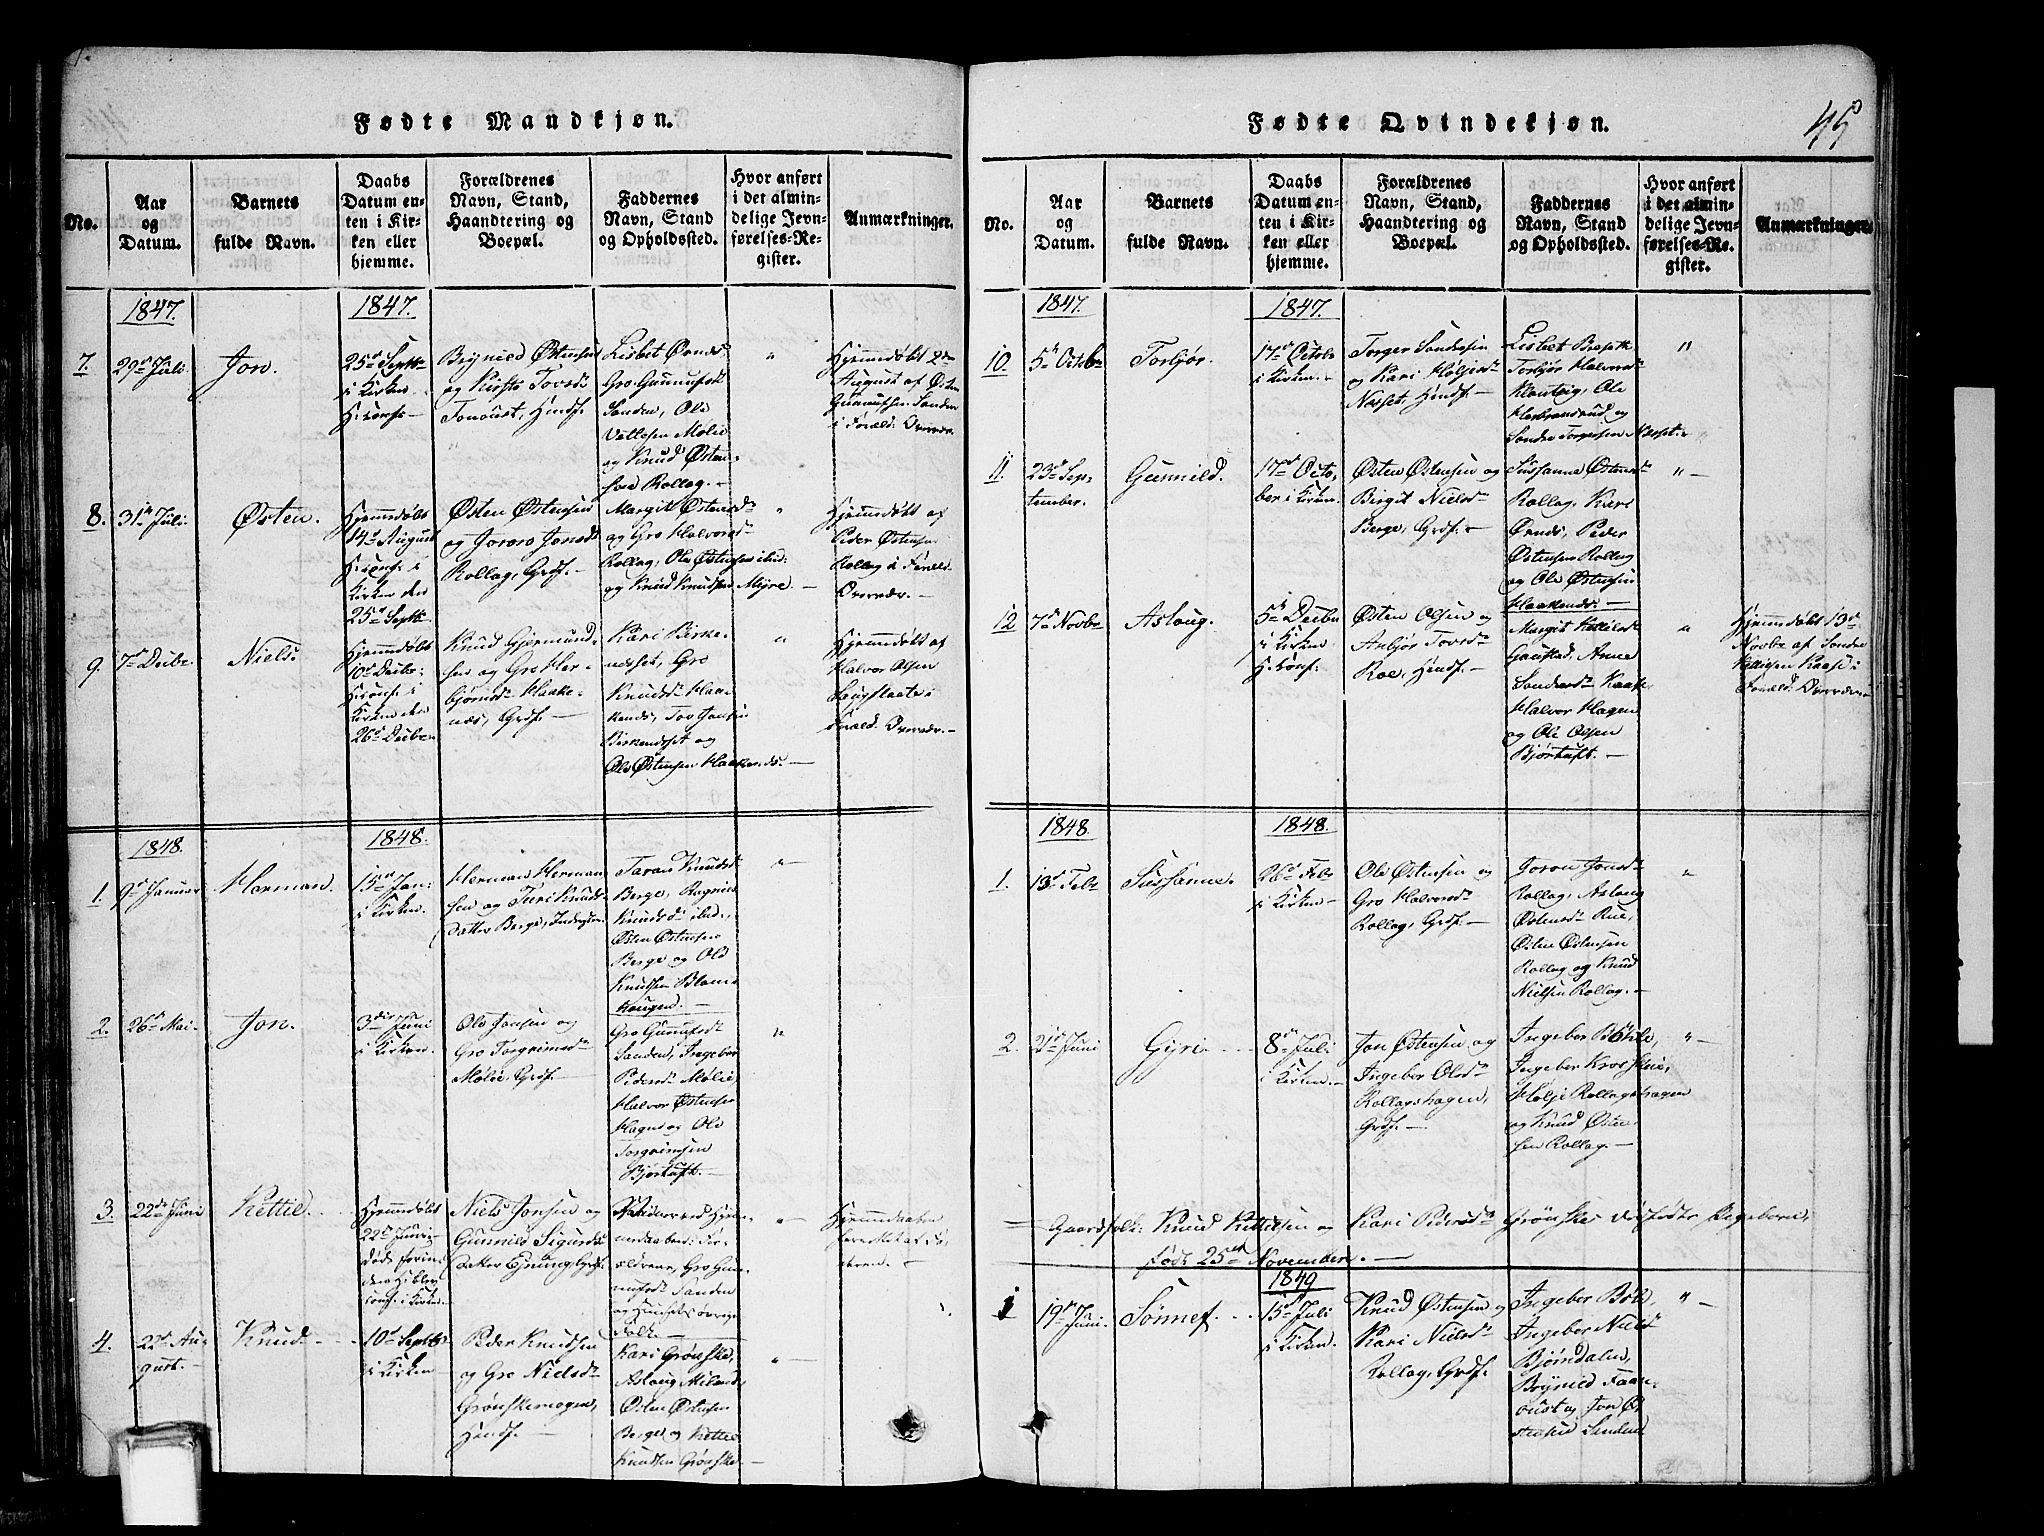 Fødte Mandkjøn.
No.
Aar
og
Datum.
Barnets
fulde Navn.
Daabs
Datum en-
ten i Kir-
ken eller
hjemme.
Forældrenes
Navn, Stand,
Haandtering og
Boepæl.
Faddernes
Navn, Stand
og Opholdssted.
Hvor anført
i det almin-
delige Jevn-
førelses-Re-
gister.
Anmærkninger.
1847.
1847.
7.
29de Juli
Jon.
25de Septb.
i Kirken
Brynild Østensen
og Kirsti Tovsd.
Lisbet Ørnds
Gro Gunnufsd.
Sanden, Ole
Vetlesen Mølie
og Knud Østen-
sen Rollag. –
"
Hjemmedøbt 2den
August af Østen
Gunnufsen Sanden
i Foræld. Overvær.
8.
31te Juli
Østen.
Hjemmedøbt
14de August
i
Kirken den
25de Septb.
Østen Østensen
og Joron Jonsd.
Rollag, Grdf. –
Margit Østensd.
og Gro Halvorsd.
Rollag, Ole Østensen ibid.
og Knud Knudsen Myre. –
"
Hjemmedøbt af
Peder Østensen
Rollag i Foræld.
Overvær. –
9.
7de Decbr.
Niels.
Hjemmedøbt
10de Decbr.
i
Kirken den
26de Decbr.
Knud Gjermund-
sen og Gro Her-
bjørnsd. Haake-
næs, Grdf. –
Kari Birke-
næset, Gro
Knudsd. Haa-
kenæs, Tov Jonsen
Birkenæset og
Ole Østensen Haakenæs. –
"
Hjemmedøbt af
Halvor Olsen
i
Foræld. Overvær. –
1848.
1848.
1.
9de Januar
Herman.
15de Jan.
i Kirken.
Herman Herman-
sen og Turi Knuds-
datter Berge, Inderster.
Taran Knudsd.
Berge, Ragnild
Knudsd. ibid.,
Østen Østensen
Berge og Ole
Knudsen Blom-
haugen. –
"–
2.
26de Mai.
Jon.
3die Juni
i Kirken.
Ole Jonsen og
Gro Torgrimsd.
Mølie, Grdf. –
Gro Gunnufsd.
Sanden, Ingebor
Pedersd. Mølie,
Halvor Østensen
Hagen og Ole
Torgrimsen
Bjørtuft. –
"
3.
22de Juni
Kettil.
Hjemmedøbt
22de Juni,
døde forin-
den
i Kirken.
Niels Jonsen og
Gunnild Sigurds-
datter
For-
ældrene, Gro Gun-
nufsd. Sanden
og Huusets øvrige
Folk. –
"–
Hjemmedaaben
forrettet af Fa-
deren. –
4.
22de Au-
gust. –
Knud
10de Septb.
i Kirken
Peder Knudsen
og Gro Nielsd.
Grønskemogen,
Hmdf. –
Kari Grønske,
Aslaug
Østen Østensen
Berge og Kettil
Knudsen Grønske. –
"–
Fødte Qvindekjøn.
45
No.
Aar
og
Datum.
Barnets
fulde Navn.
Daabs
Datum en-
ten i Kir-
ken eller
hjemme.
Forældrenes
Navn, Stand,
Haandtering og
Boepæl.
Faddernes
Navn, Stand
og Opholdssted.
Hvor anført
i det almin-
delige Jevn-
førelses-Re-
gister.
Anmærkninger.
1847.
1847.
10.
5te Octbr.
Torbjør.
17de Octbr.
i Kirken. –
Torger Sondresen
og Kari Holjesd.
Næset, Hmdf. –
Lisbet
Torbjør Halvorsd.
Ole
Herbrandrud og
Sondre Torgersen Næset. –
"
11.
23de Sep-
tember.
Gunnild.
17de Octo-
ber i Kirken.
Østen Østensen og
Bergit Nielsd.
Berge, Grdf. –
Sussanne Østensd.
Rollag, Kari
Ørnds, Peder
Østensen Rollag
og Ole Østensen
Haakenæs. –
"–
12
7de Novbr.
Aslaug.
5te Decbr.
i Kirken
Østen Olsen og
Anbjør Tovsd.
Roe, Hmdf. –
Margit Kittilsd.
Gaustad, Anne
Sondresd. Kaase,
Halvor Hagen
og Ole Olsen
Bjørtuft. –
"
Hjemmedøbt 13de
Novbr. af Sondre
Kittilsen Kaase i
Foræld. Overvær. –
1848.
1848.
1.
13de Feb.
Sussanne.
26de Feb.
i Kirken –
Ole Østensen og
Gro Halvorsd.
Rollag, Grdf. –
Joron Jonsd.
Rollag, Aslaug
Østensd. Rue,
Østen Østensen
Rollag og Knud
Nielsen Rollag. –
"
2.
Juni
Gyri.
8de Juli
i Kirken. –
Jon Østensen og
Ingebor Olsd.
Rollagshagen,
Grdf. –
Ingebor Bøhle,
Ingebor
Holje Rollagshagen
og Knud Østen-
sen Rollag. –
"–
Gaardfolk: Knud Kittilsen og Kari Pedersd. Grønskes Pigebarn,
født 25de November. –
1849
1
19de Juni.
Sønnef.
15de Juli
i Kirken.
Knud Østensen og
Kari Nielsd.
Rollag, Grdf.
Ingebor Bøle,
Ingebor Nielsd.
Bjørndalen,
Brynild Taan-
oust og Jon Ø-
stensen Sanden
"–